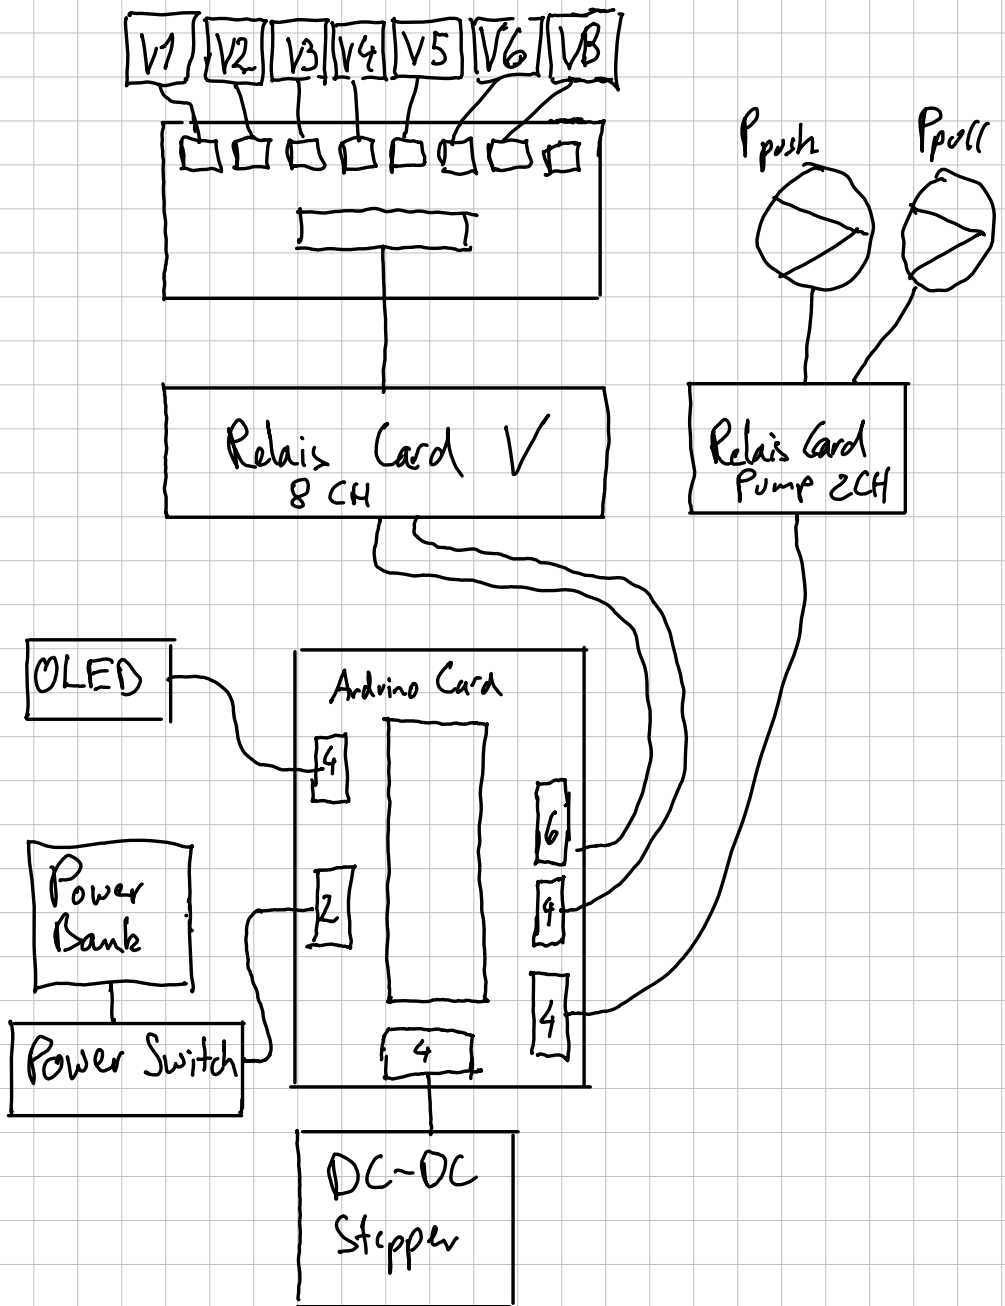 V1 V2 V3 V4 V5 V6 VB
Ppush Ppull
Relais Card V
8 CH
Relais Card
Pump 2CH
OLED
Arduino Card
4
6
Power
Bank
2
4
4
Power Switch
4
DC-DC
Stepper